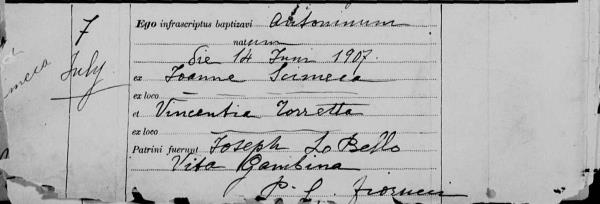 7
July
Ego infrascriptus baptizavi Antoninum
natum
die 14 Juni 1907.
ex Joanne Scimeca
ex loco
et Vincentia Torretta
ex loco
Patrini fuerunt Joseph Lo Bello
Vita Gambina
P. L. Fiorucci